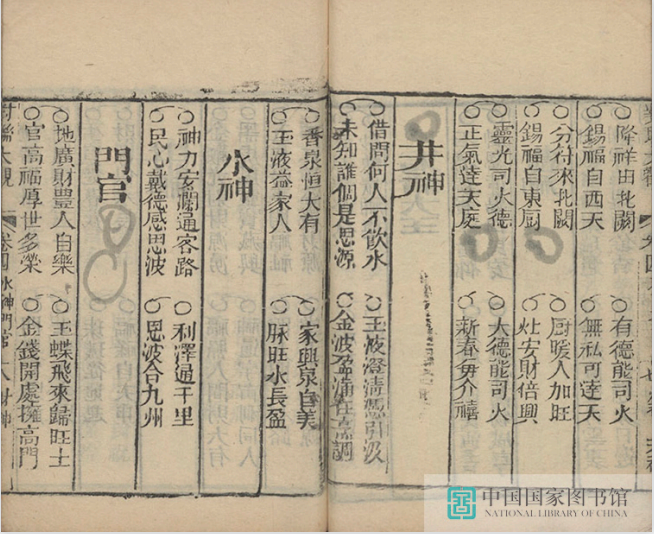 降祥由北闕
有德能司火
錫福自西天
無私可達天
分府來北闕
廚暖人加旺
錫福自東厨
灶安財倍興
靈光司火德
大德能司火
正氣達天庭
新春毋介禧
井神
借問何人不飲水
玉液澄清
引汲
未知誰個是思源
金波盈
香泉恒大有
家興泉自美
玉液益家人
脉旺水長盈
水神
神力安瀾通客路
利澤通千里
民心戴德感恩波
恩波合九州
門官
地廣財豐人自樂
玉蝶飛來歸旺土
官高福厚世多榮
金錢開處擁高門
對聯大觀
卷四
水神門官
八
中国国家图书馆
NATIONAL LIBRARY OF CHINA